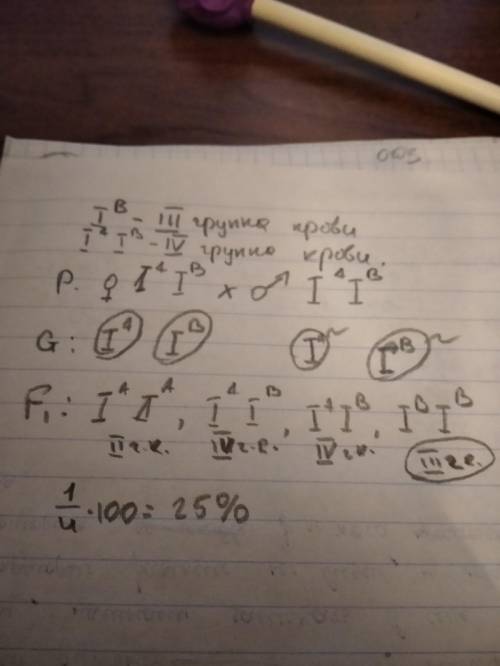 I^B - III группа крови
I^A I^B - IV группа крови.
P. ♀ I^A I^B × ♂ I^A I^B
G: I^A I^B I^A I^B
F₁: I^A I^A, I^A I^B, I^A I^B, I^B I^B
II г.к. IV г.к. IV г.к. III г.к.
1/4 · 100 = 25%